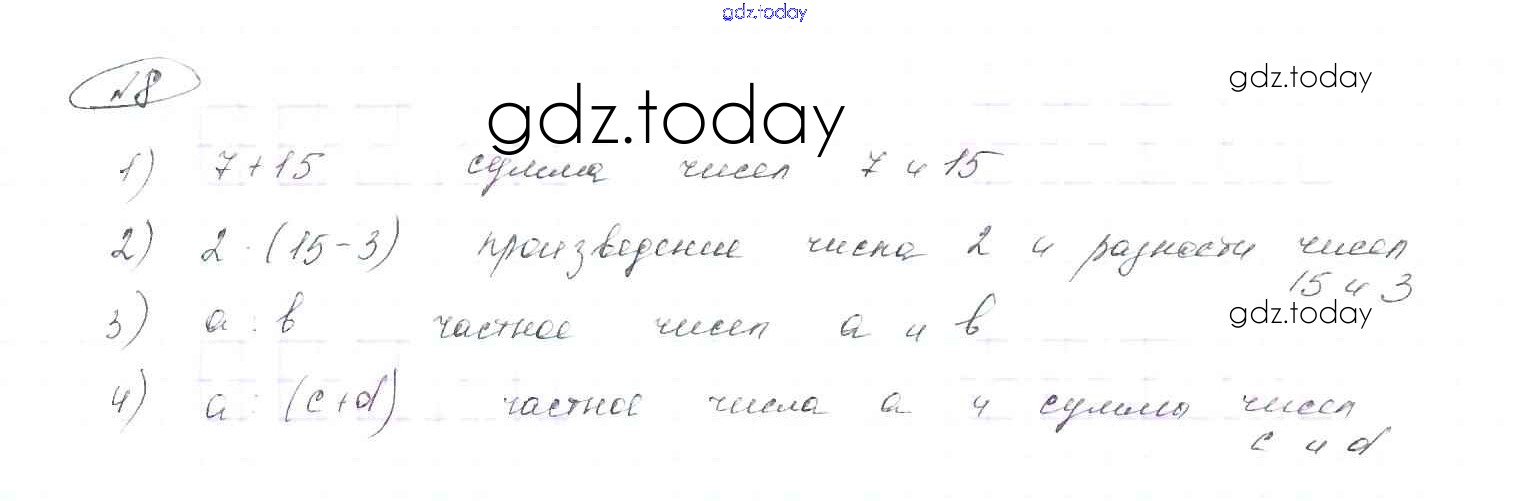 gdz.today
№8
gdz.today
gdz.today
1) 7+15 сумма чисел 7 и 15
2) 2 · (15-3) произведение числа 2 и разности чисел
15 и 3
3) a : b частное чисел a и b
gdz.today
4) a : (c+d) частное числа a и суммы чисел
c и d